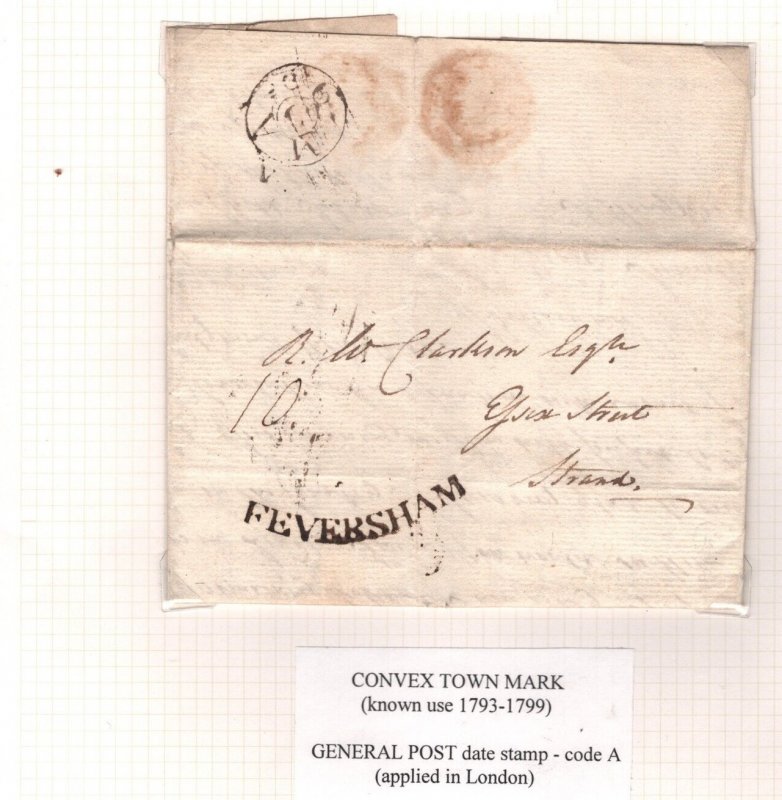 R. Mr. Clarkson Esqr.
10
Essex Street
Strand.
FEVERSHAM
CONVEX TOWN MARK
(known use 1793-1799)
GENERAL POST date stamp - code A
(applied in London)